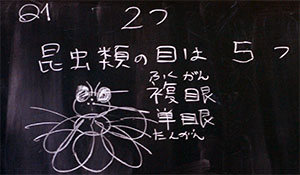 Q1 2つ
昆虫類の目は 5つ
ふくがん
複眼
単眼
たんがん